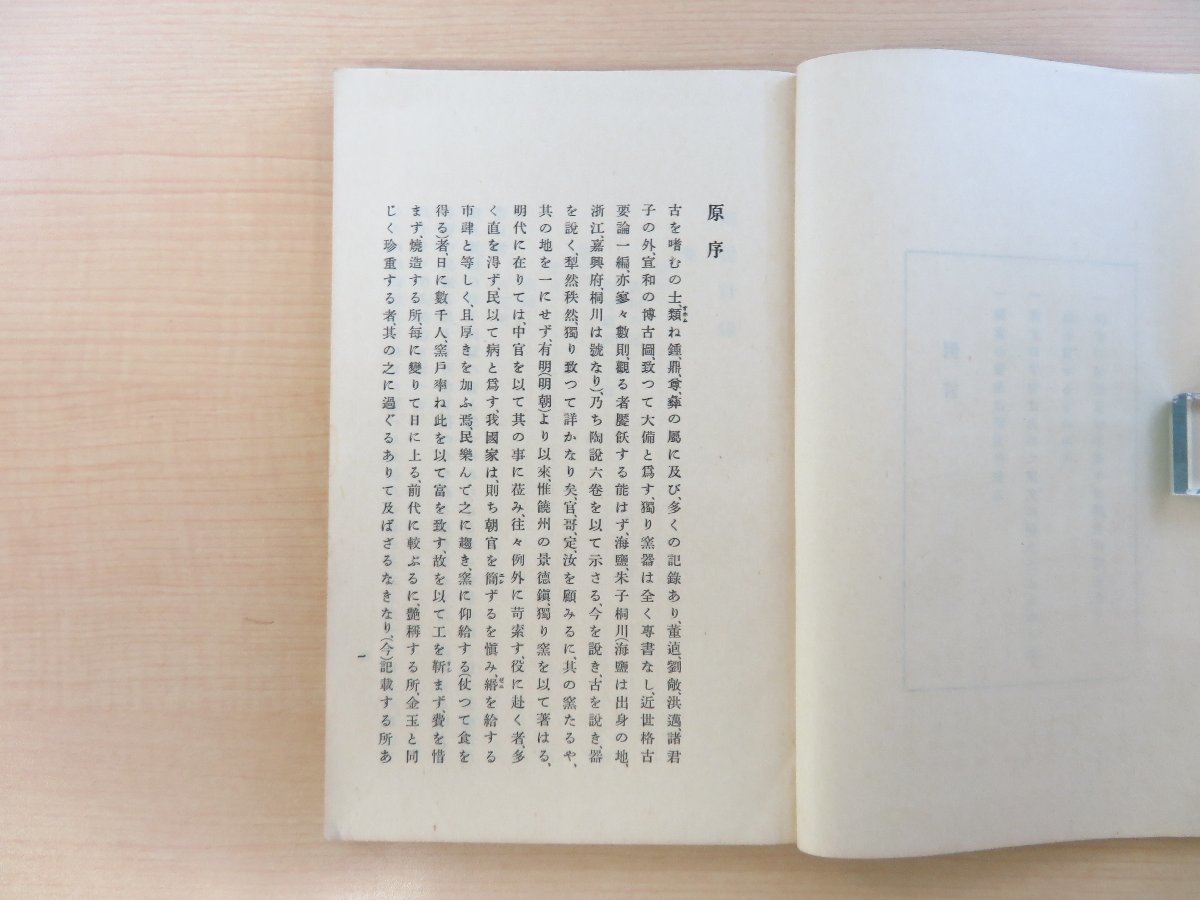 原序
古を嗜むの士、類ね鍾、鼎、尊、彝の屬に及び、多くの記錄あり、董逌、劉敞、洪邁、諸君
子の外、宣和の博古圖、致つて大備と爲す、獨り窯器は全く專書なし、近世格古
要論一編、亦寥々數則、觀る者饜飫する能はず、海鹽、朱子桐川(海鹽は出身の地、
浙江、嘉興府、桐川は號なり)、乃ち陶說六卷を以て示さる、今を說き、古を說き、器
を說く、犁然秩然、獨り致つて詳かなり矣、官、哥、定、汝を顧みるに、其の窯たるや、
其の地を一にせず、有明(明朝)より以來、惟饒州の景德鎭、獨り窯を以て著はる、
明代に在りては、中官を以て其の事に莅み、往々例外に苛索す、役に赴く者、多
く直を得ず、民以て病と爲す、我國家は、則ち朝官を簡ずるを愼み、緡を給する
市肆と等しく、且厚きを加ふ焉、民樂んで之に趨き、窯に仰給する(仗つて食を
得る)者、日に數千人、窯戶率ね此を以て富を致す、故を以て工を靳まず、費を惜
まず、燒造する所、每に變りて日に上る、前代に較ぶるに、艷稱する所、金玉と同
じく珍重する者、其の之に過ぐるありて及ばざるなきなり、(今)記載する所あ
一